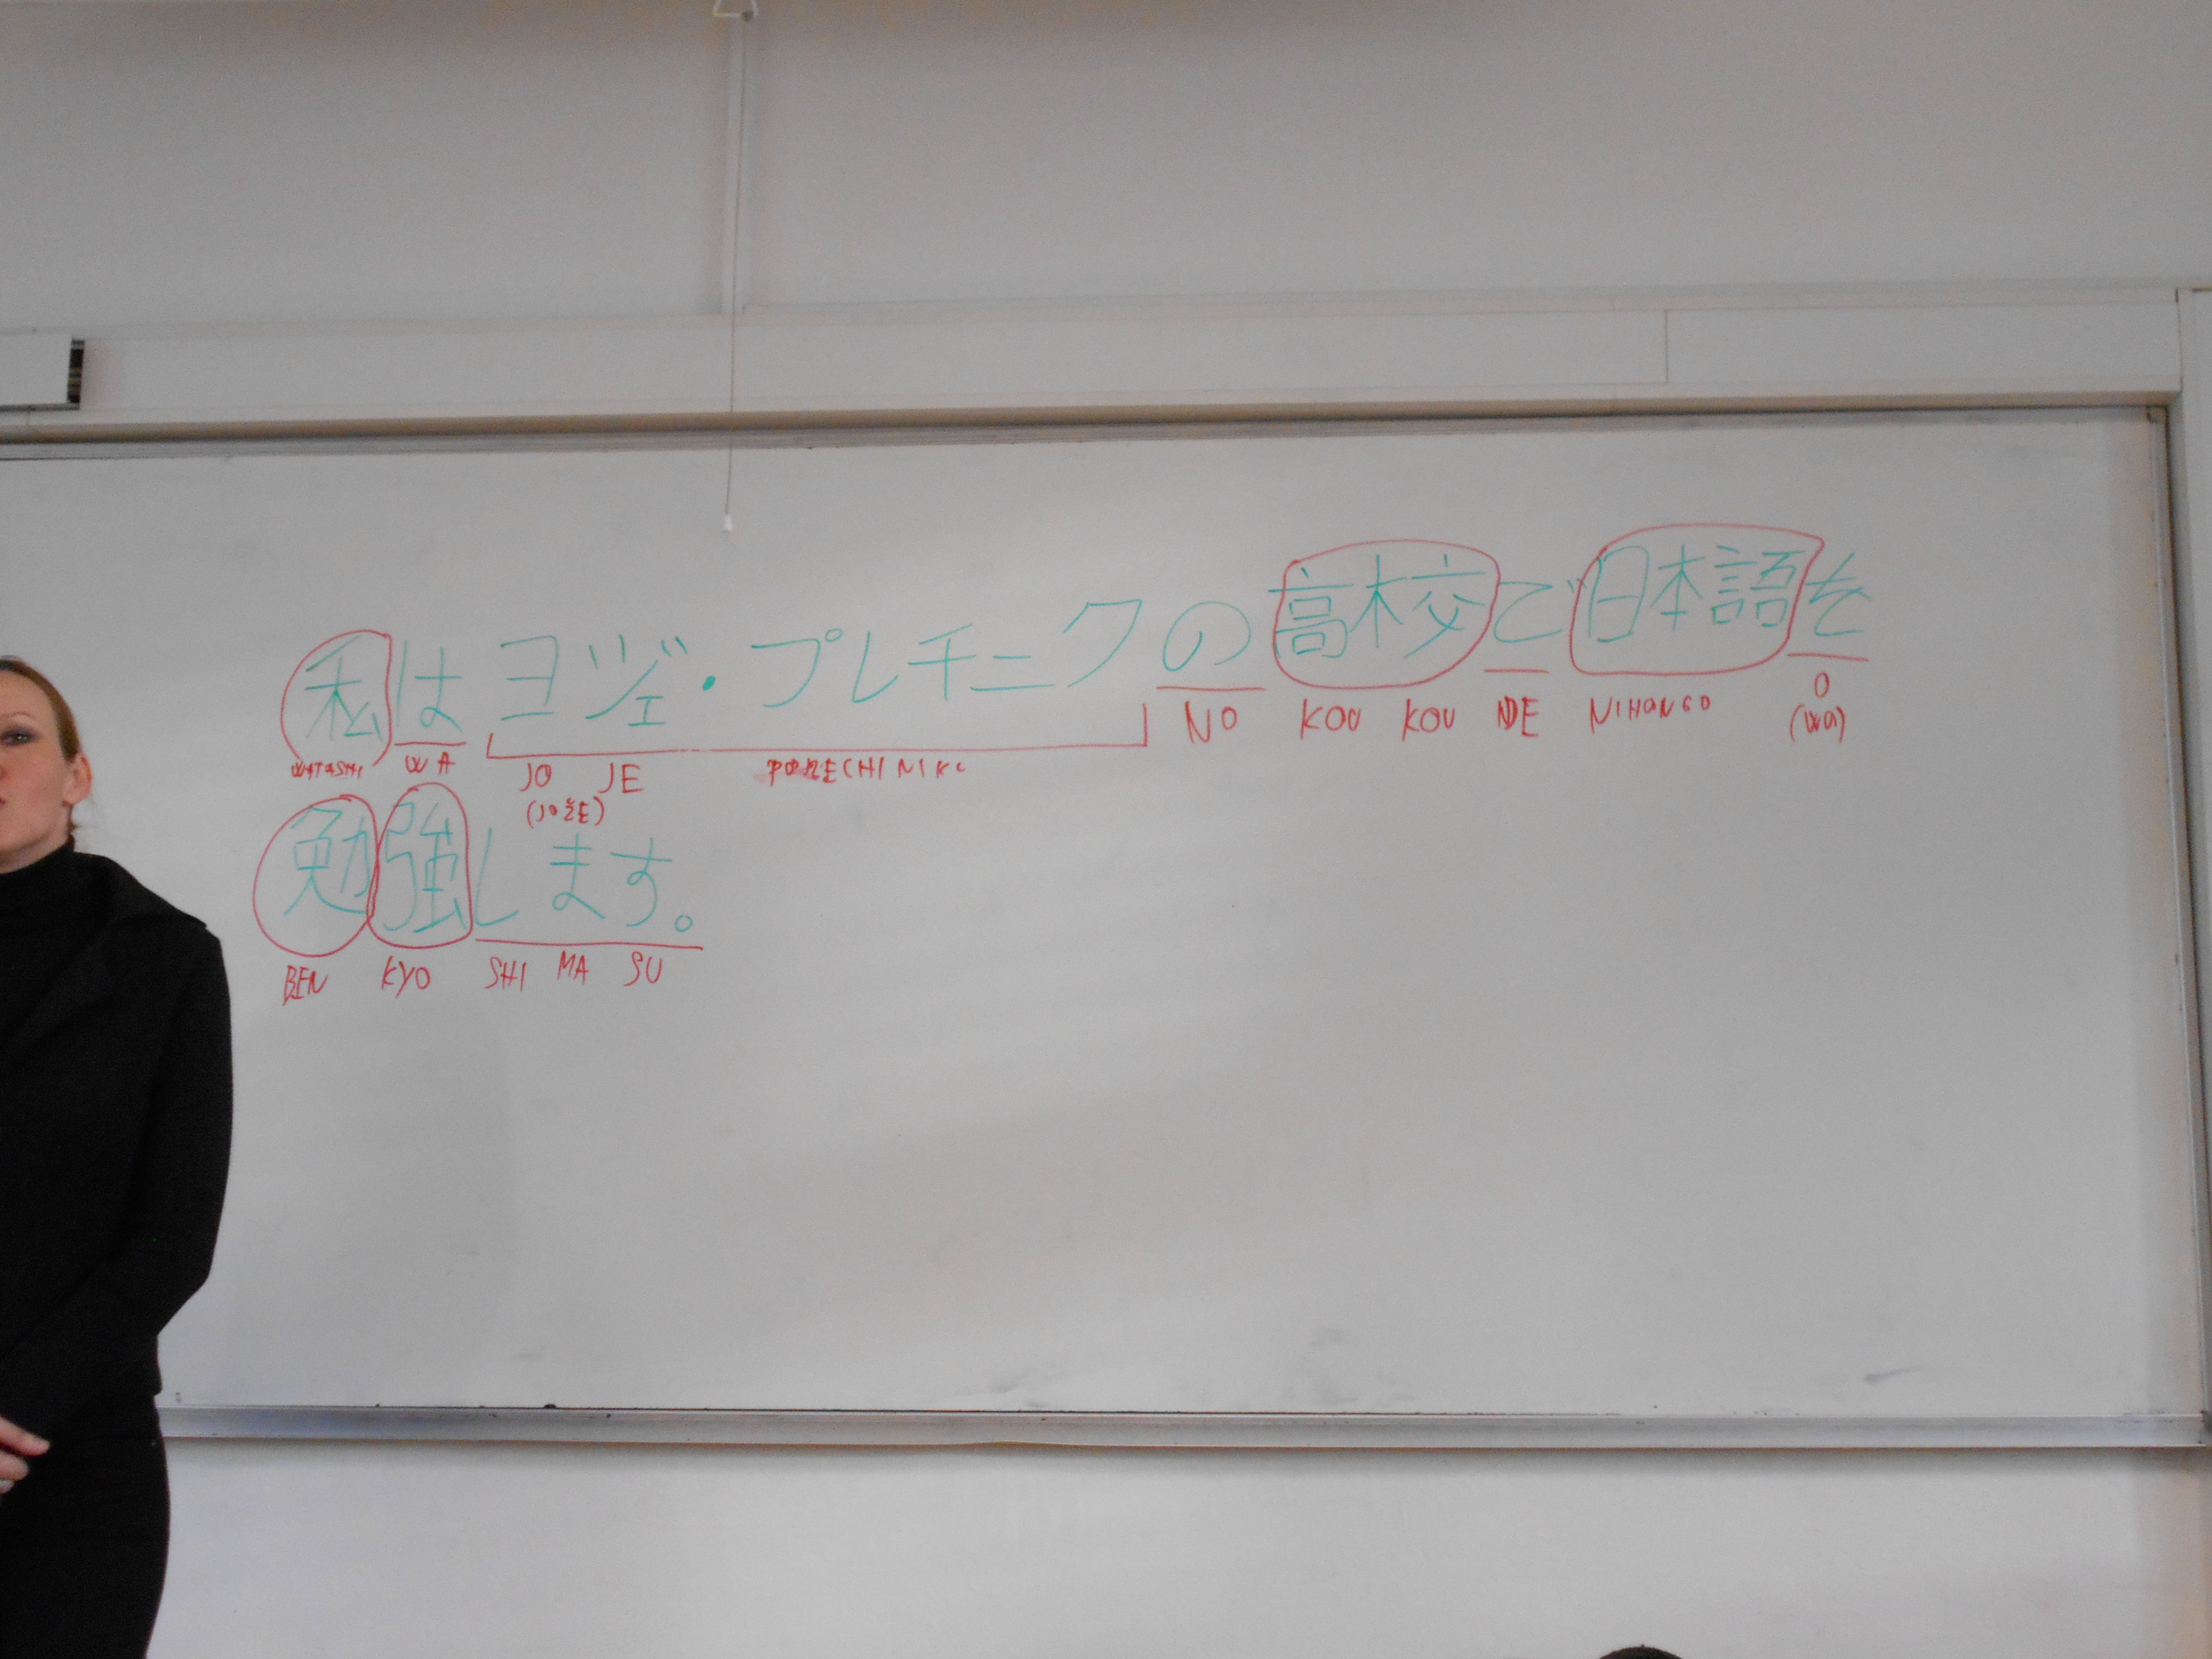 私はヨジェ・プレチニクの高校で日本語を
WATASHI WA JO JE PORECHINIKU NO KOU KOU DE NIHONGO O
(JOŽE) (WO)
勉強します。
BEN KYO SHI MA SU